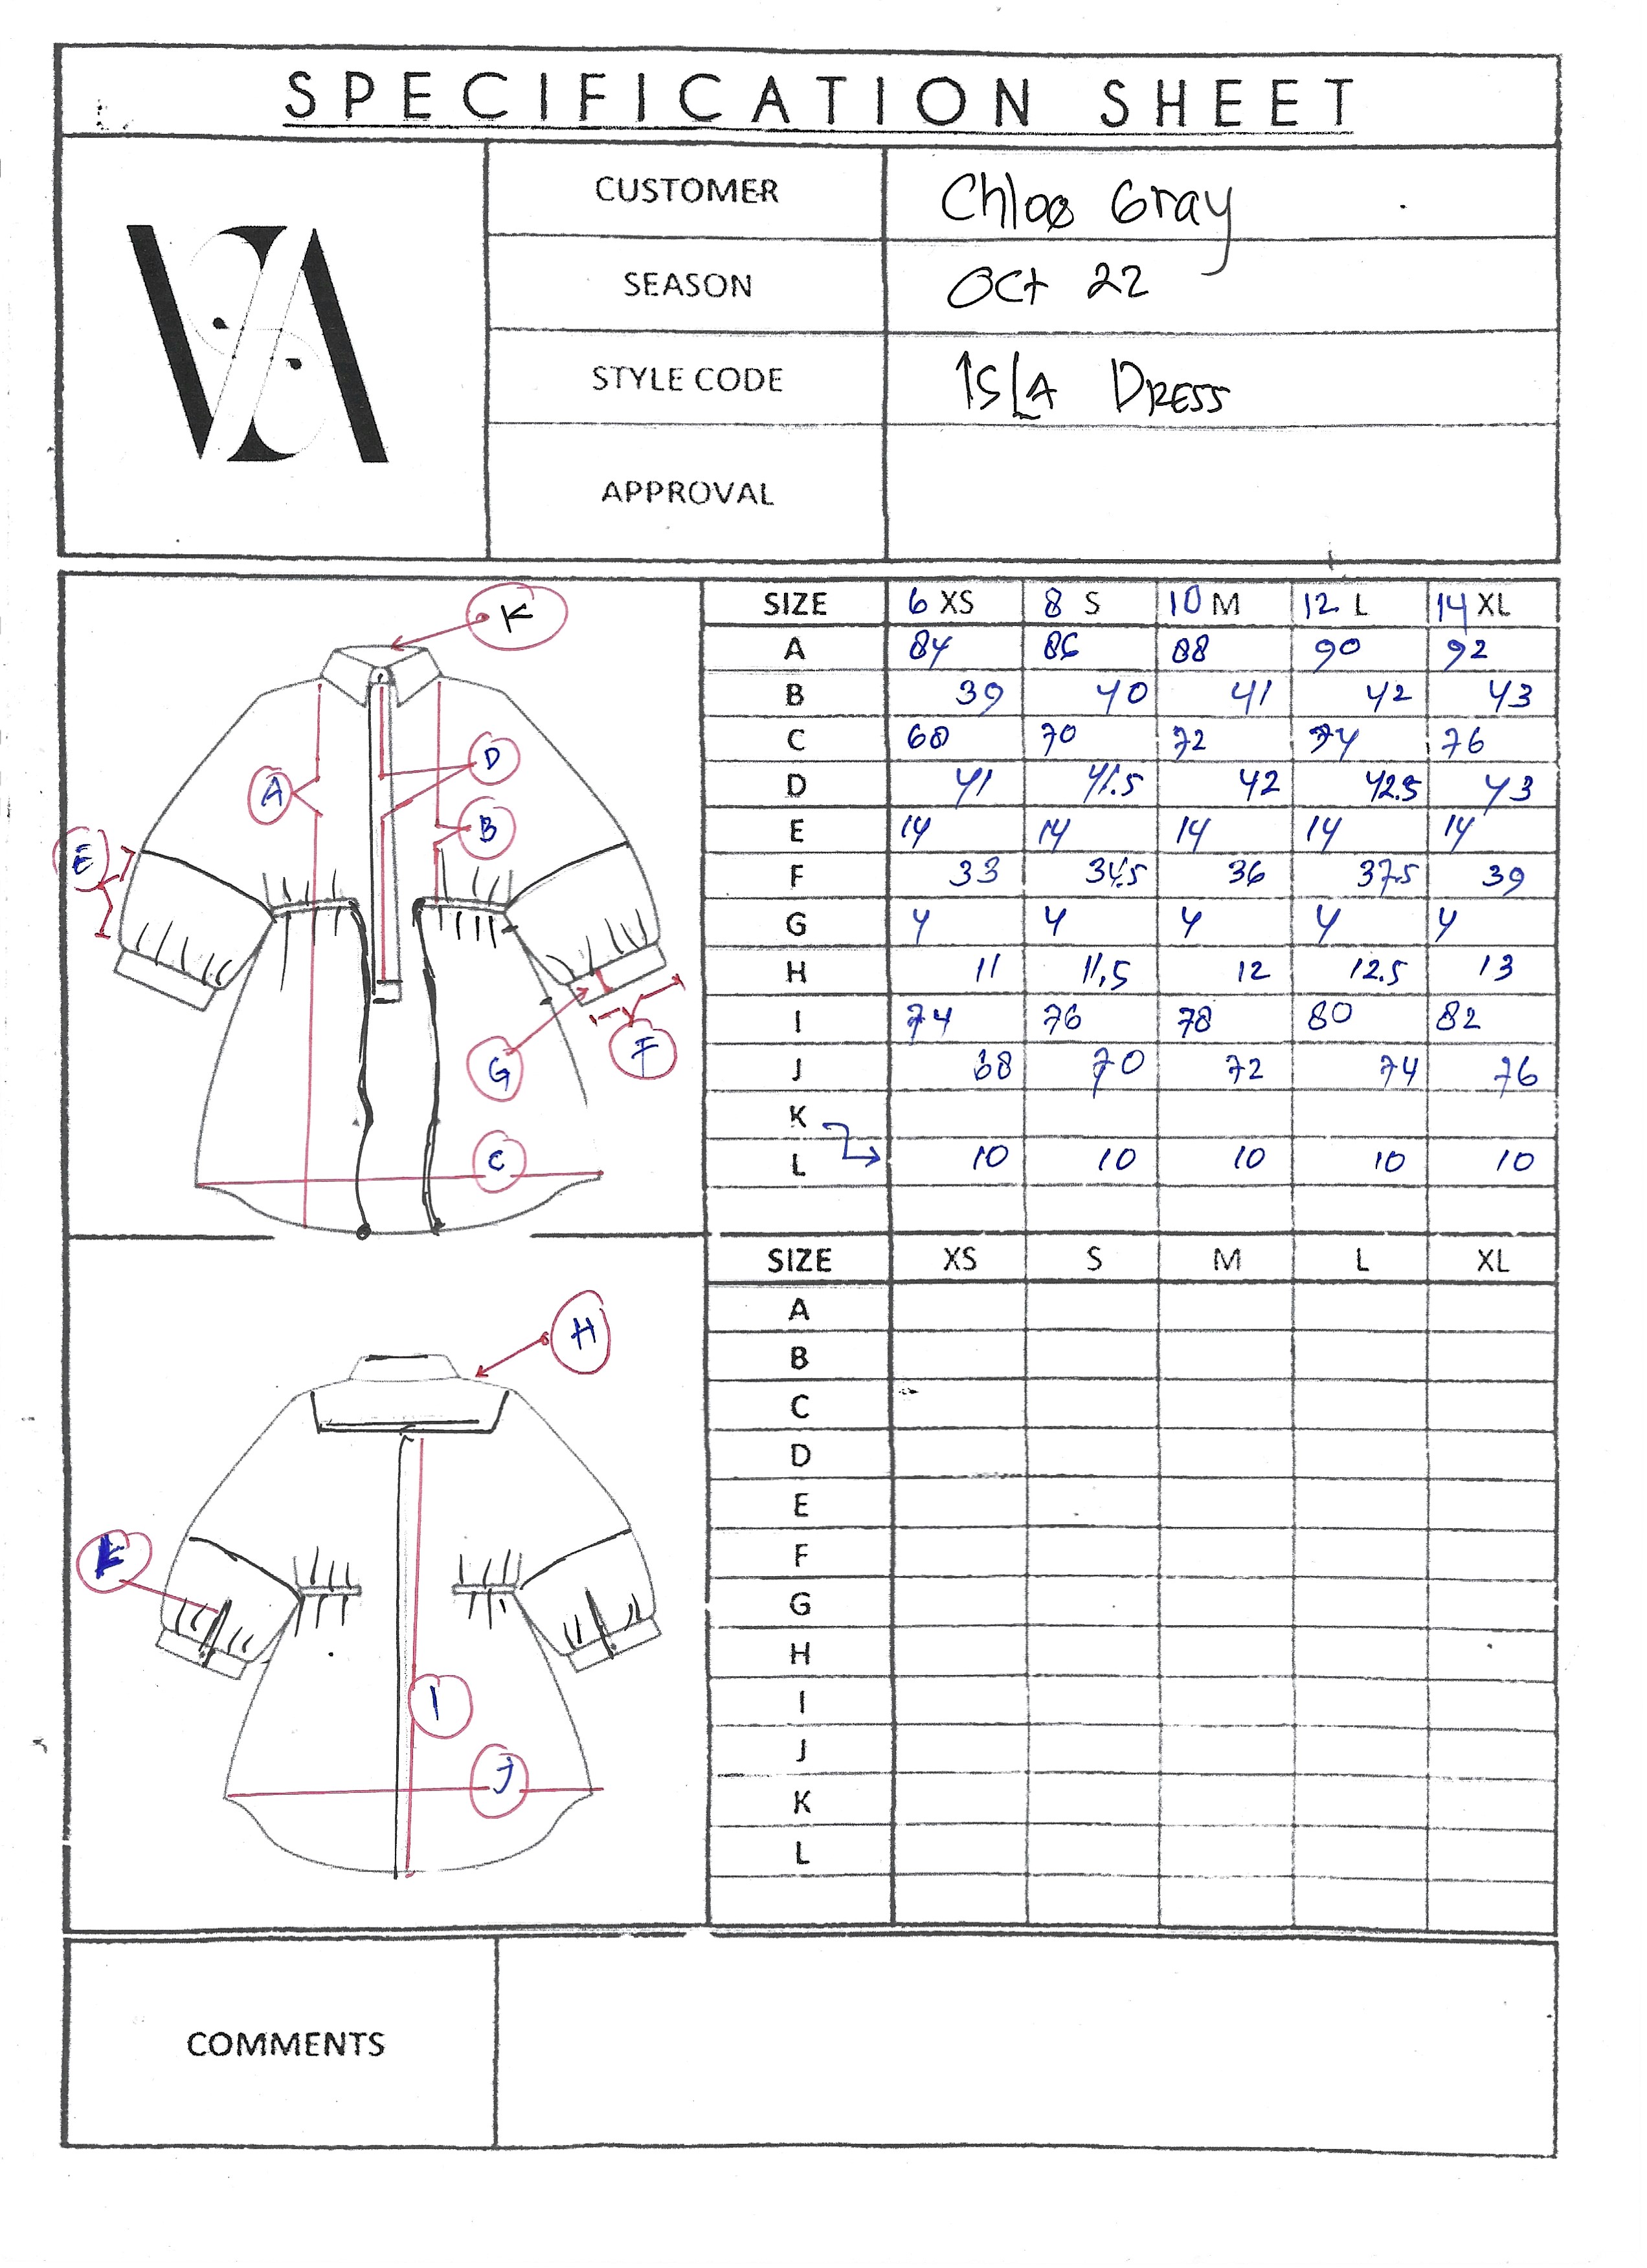 SPECIFICATION SHEET
CUSTOMER Chloe Gray
SEASON Oct 22
STYLE CODE ISLA DRESS
APPROVAL
K
A
D
B
E
G
F
C
SIZE 6 XS 8 S 10 M 12 L 14 XL
A 84 86 88 90 92
B 39 40 41 42 43
C 68 70 72 74 76
D 41 41.5 42 42.5 43
E 14 14 14 14 14
F 33 34.5 36 37.5 39
G 4 4 4 4 4
H 11 11,5 12 12.5 13
I 74 76 78 80 82
J 68 70 72 74 76
K
L 10 10 10 10 10
H
I
J
SIZE XS S M L XL
A
B
C
D
E
F
G
H
I
J
K
L
COMMENTS